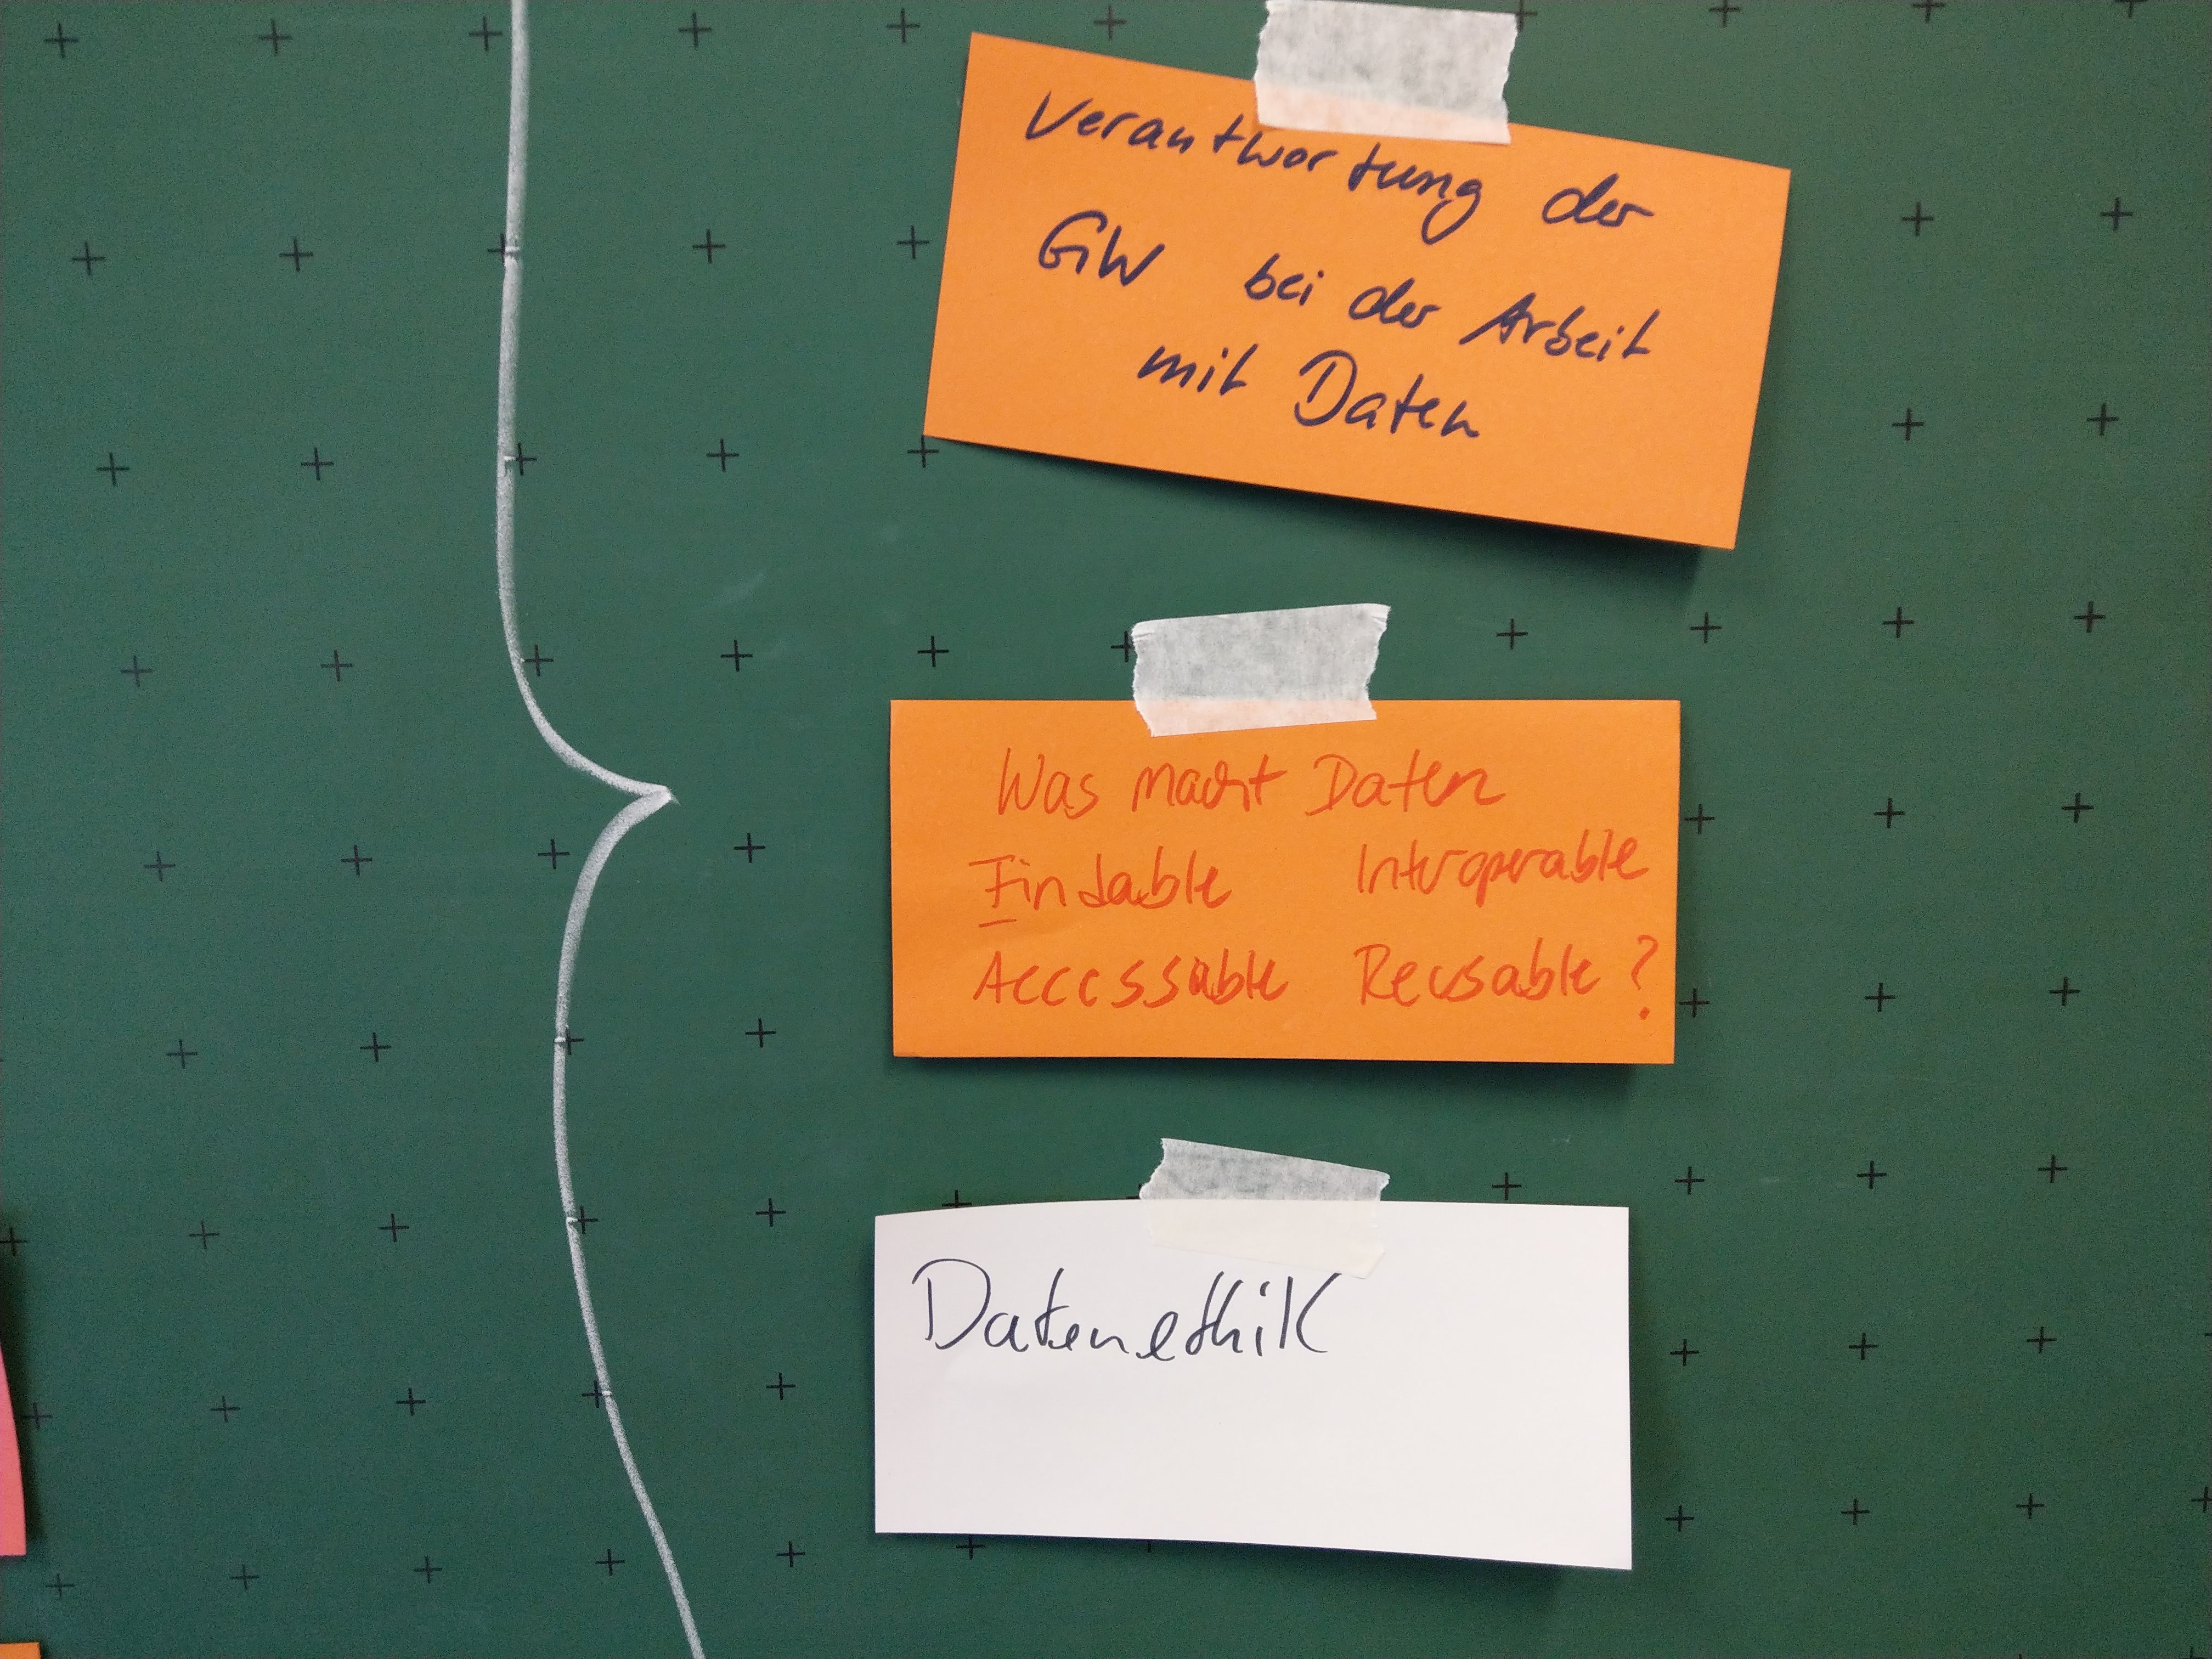 Verantwortung der
GW bei der Arbeit
mit Daten
Was macht Daten
Findable Interoperable
Accessable Reusable?
Datenethik